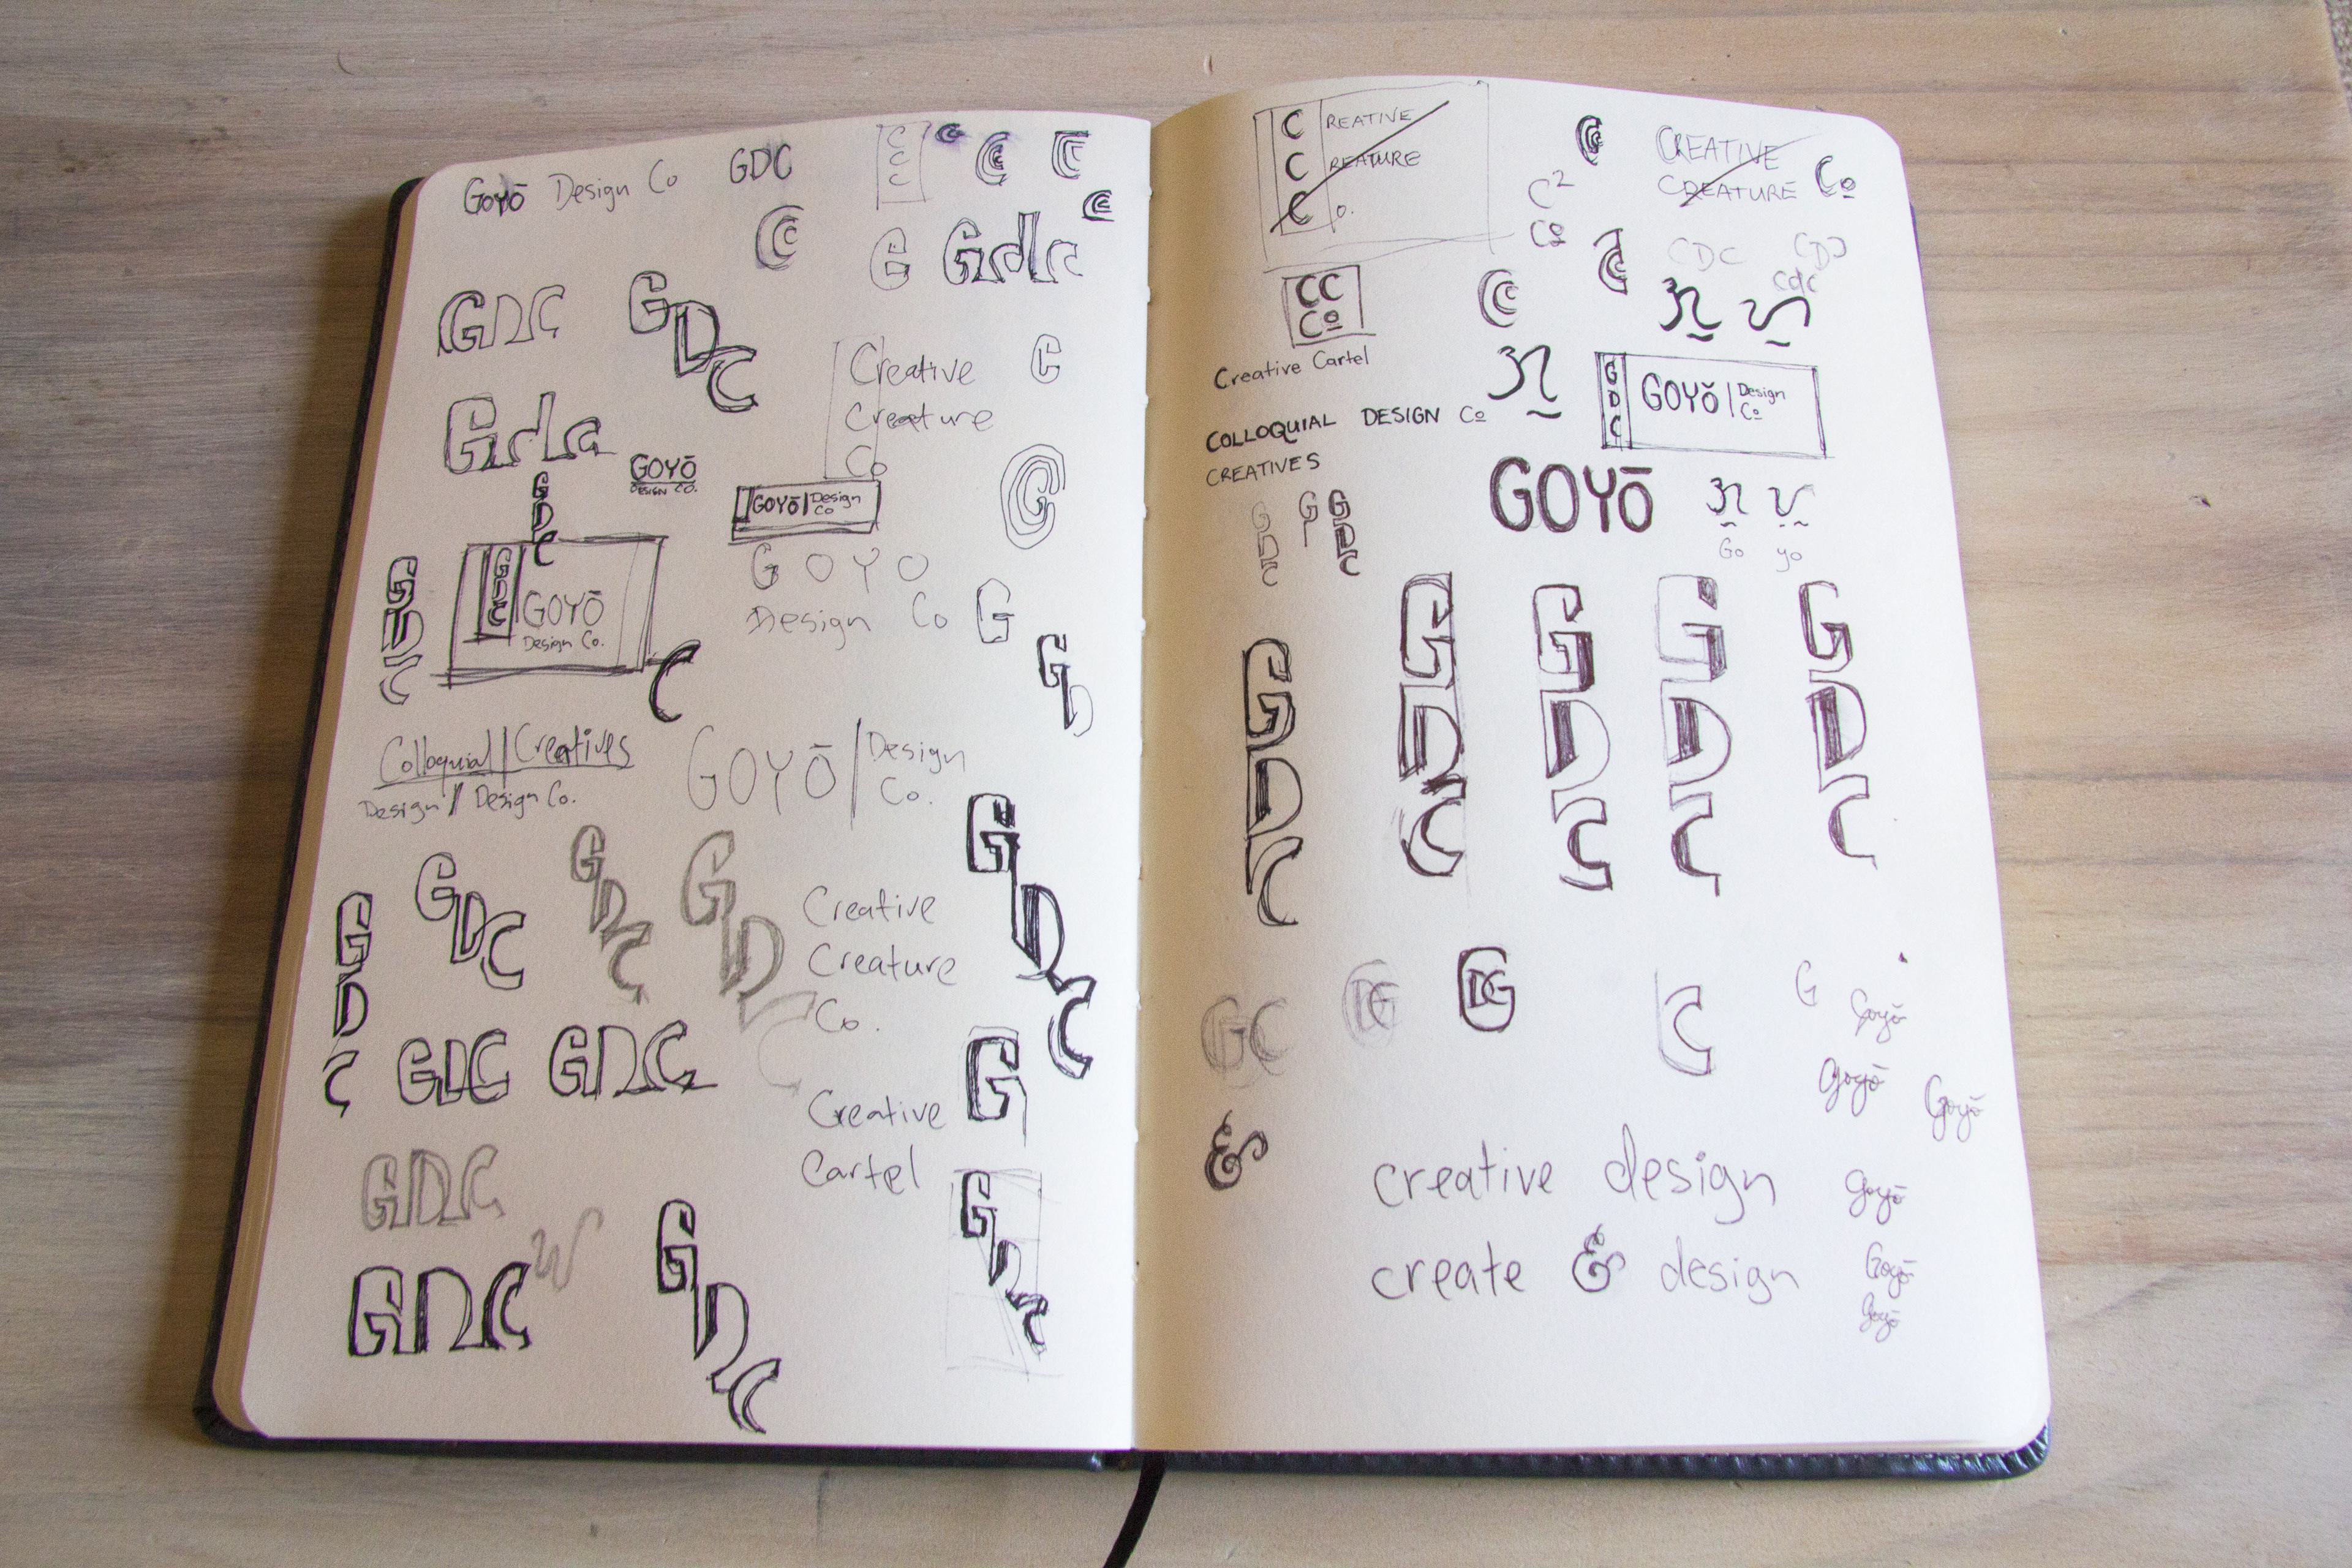 GOYŌ Design Co
GDC
C
C
C
C
Gdc
GDC
GDC
Creative
Creature
Co
C
Gdc
GOYŌ
DESIGN CO.
GDC
GOYŌ | Design
Co
G
GDC
GDC
GOYŌ
Design Co.
G O Y O
Design Co
G
GD
GDC
C
Colloquial | Creatives
Design / Design Co.
GOYŌ | Design
Co.
GDC
GDC
GDC
GDC
GDC
GDC
Creative
Creature
Co.
GDC
GDC
Creative
Cartel
G
GDC
GDC
GDC
GDC
C REATIVE
C REATURE
C O.
C²
Co
CREATIVE
CREATURE Co
CDC
cdc
CC
Co
Creative Cartel
COLLOQUIAL DESIGN Co
CREATIVES
GDC
GOYŌ | Design
Co
GOYŌ
Go yo
GDC
G
GDC
GDC
GDC
GDC
GDC
GDC
GC
DG
DG
C
G
Goyō
goyō
Goyō
&
creative design
goyō
create & design
Goyō
goyō